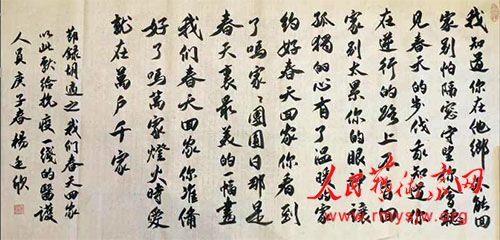 我知道你在他鄉不能回
家別怕隔窗守望你會聽
見春天的步伐我知道你
在逆行的路上不曾回
家別太累你的眼讓
孤獨的心有了溫暖的家
約好春天回家你看到
了嗎家々團圓日那是
春天裏最美的一幅畫
我們春天回家你准備
好了嗎萬家燈火時愛
就在萬戶千家
錄胡適之我們春天回家
以此獻給抗疫一綫的醫護
人員庚子春楊廷欣
人民藝術家网